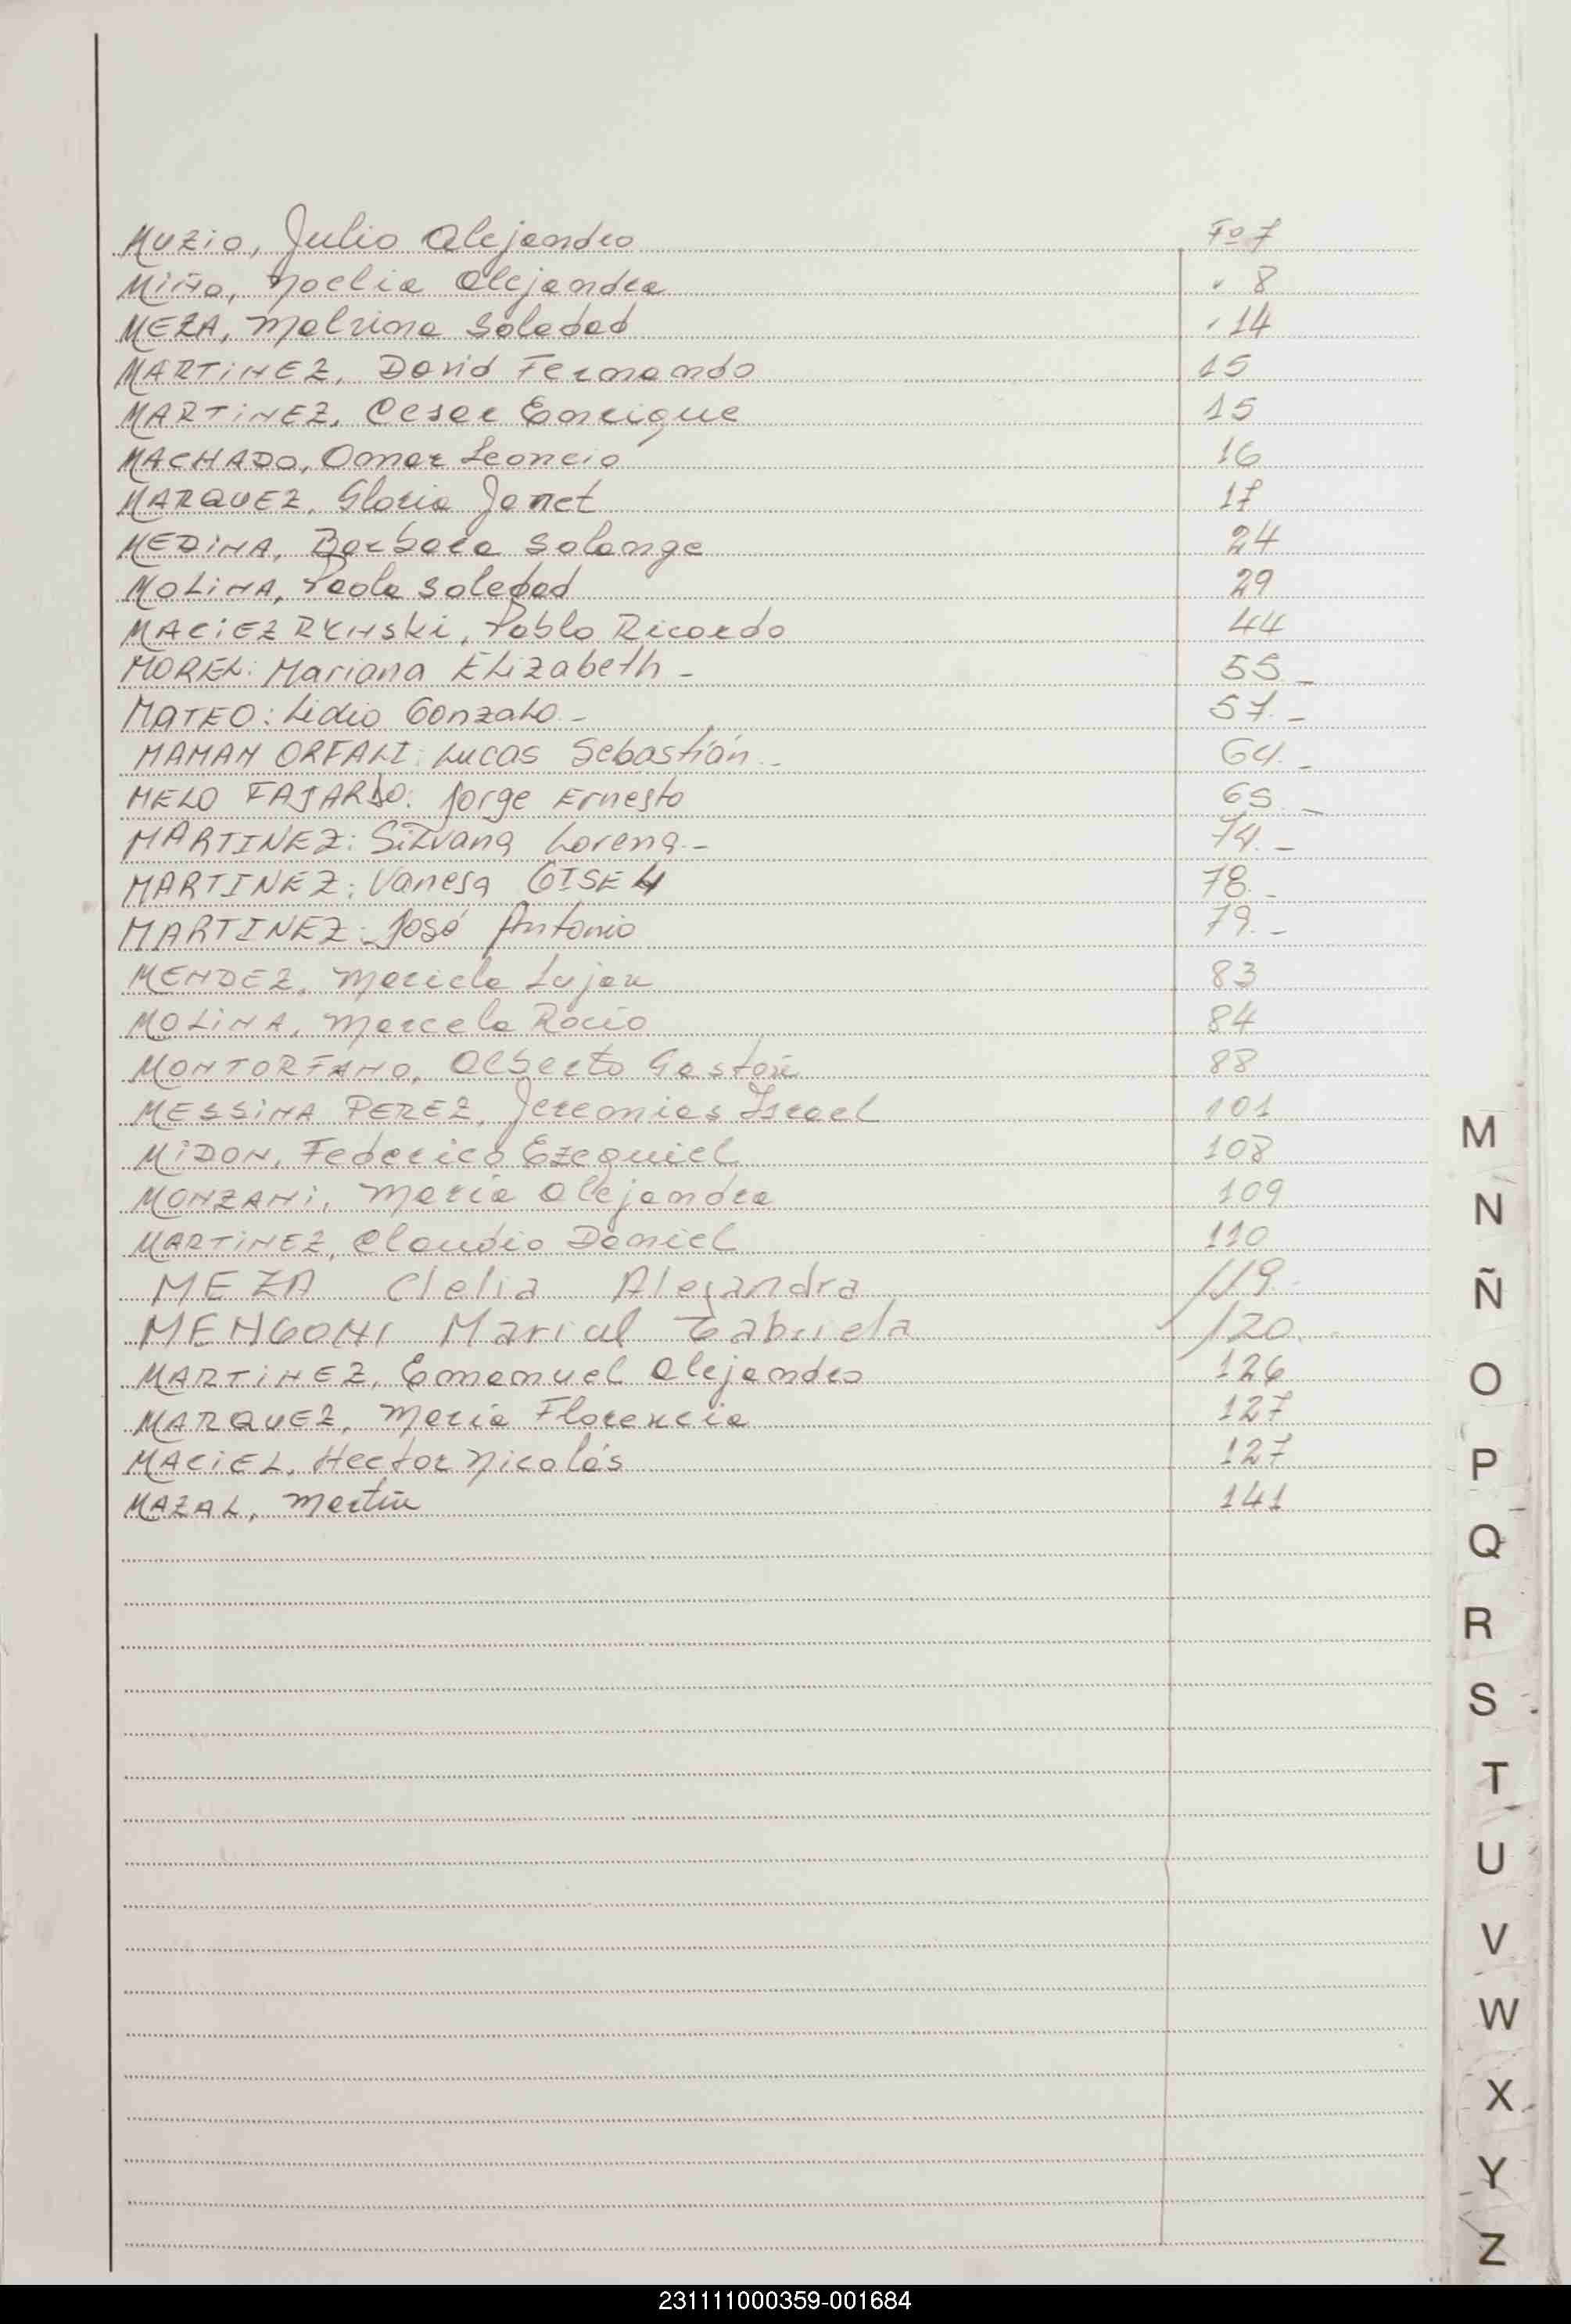 MUZIO, Julio Alejandro Fº 7
MIÑO, Noelia Alejandra " 8
MEZA, Malvina Soledad " 14
MARTINEZ, David Fernando 15
MARTINEZ, Cesar Enrique 15
MACHADO, Omar Leoncio 16
MARQUEZ, Gloria Janet 17
MEDINA, Barbara Solange 24
MOLINA, Paola Soledad 29
MACIEZRYNSki, Pablo Ricardo 44
MOREL: Mariana Elizabeth - 55 -
MATEO: Lidio Gonzalo.- 57.-
MAMAN ORFALI: Lucas Sebastián.- 64.-
MELO FAJARDO: Jorge Ernesto 65.-
MARTINEZ: Silvana Lorena.- 74.-
MARTINEZ: Vanesa 78.-
MARTINEZ: José Antonio 79.-
MENDEZ, Mariela Lujan 83
MOLINA, Marcela Rocío 84
MONTORFANO, Alberto Gastón 88
MESSINA PEREZ, Jeremias Israel 101
MIDON, Federico Ezequiel 108
MONZANI, María Alejandra 109
MARTINEZ, Claudio Daniel 110
MEZA Clelia Alejandra 119
MENGONI Marial Gabriela 120
MARTINEZ, Emmanuel Alejandro 126
MARQUEZ, María Florencia 127
MACIEL, Hector Nicolás 127
MAZAL, Martín 141
M
N
Ñ
O
P
Q
R
S
T
U
V
W
X
Y
Z
231111000359-001684